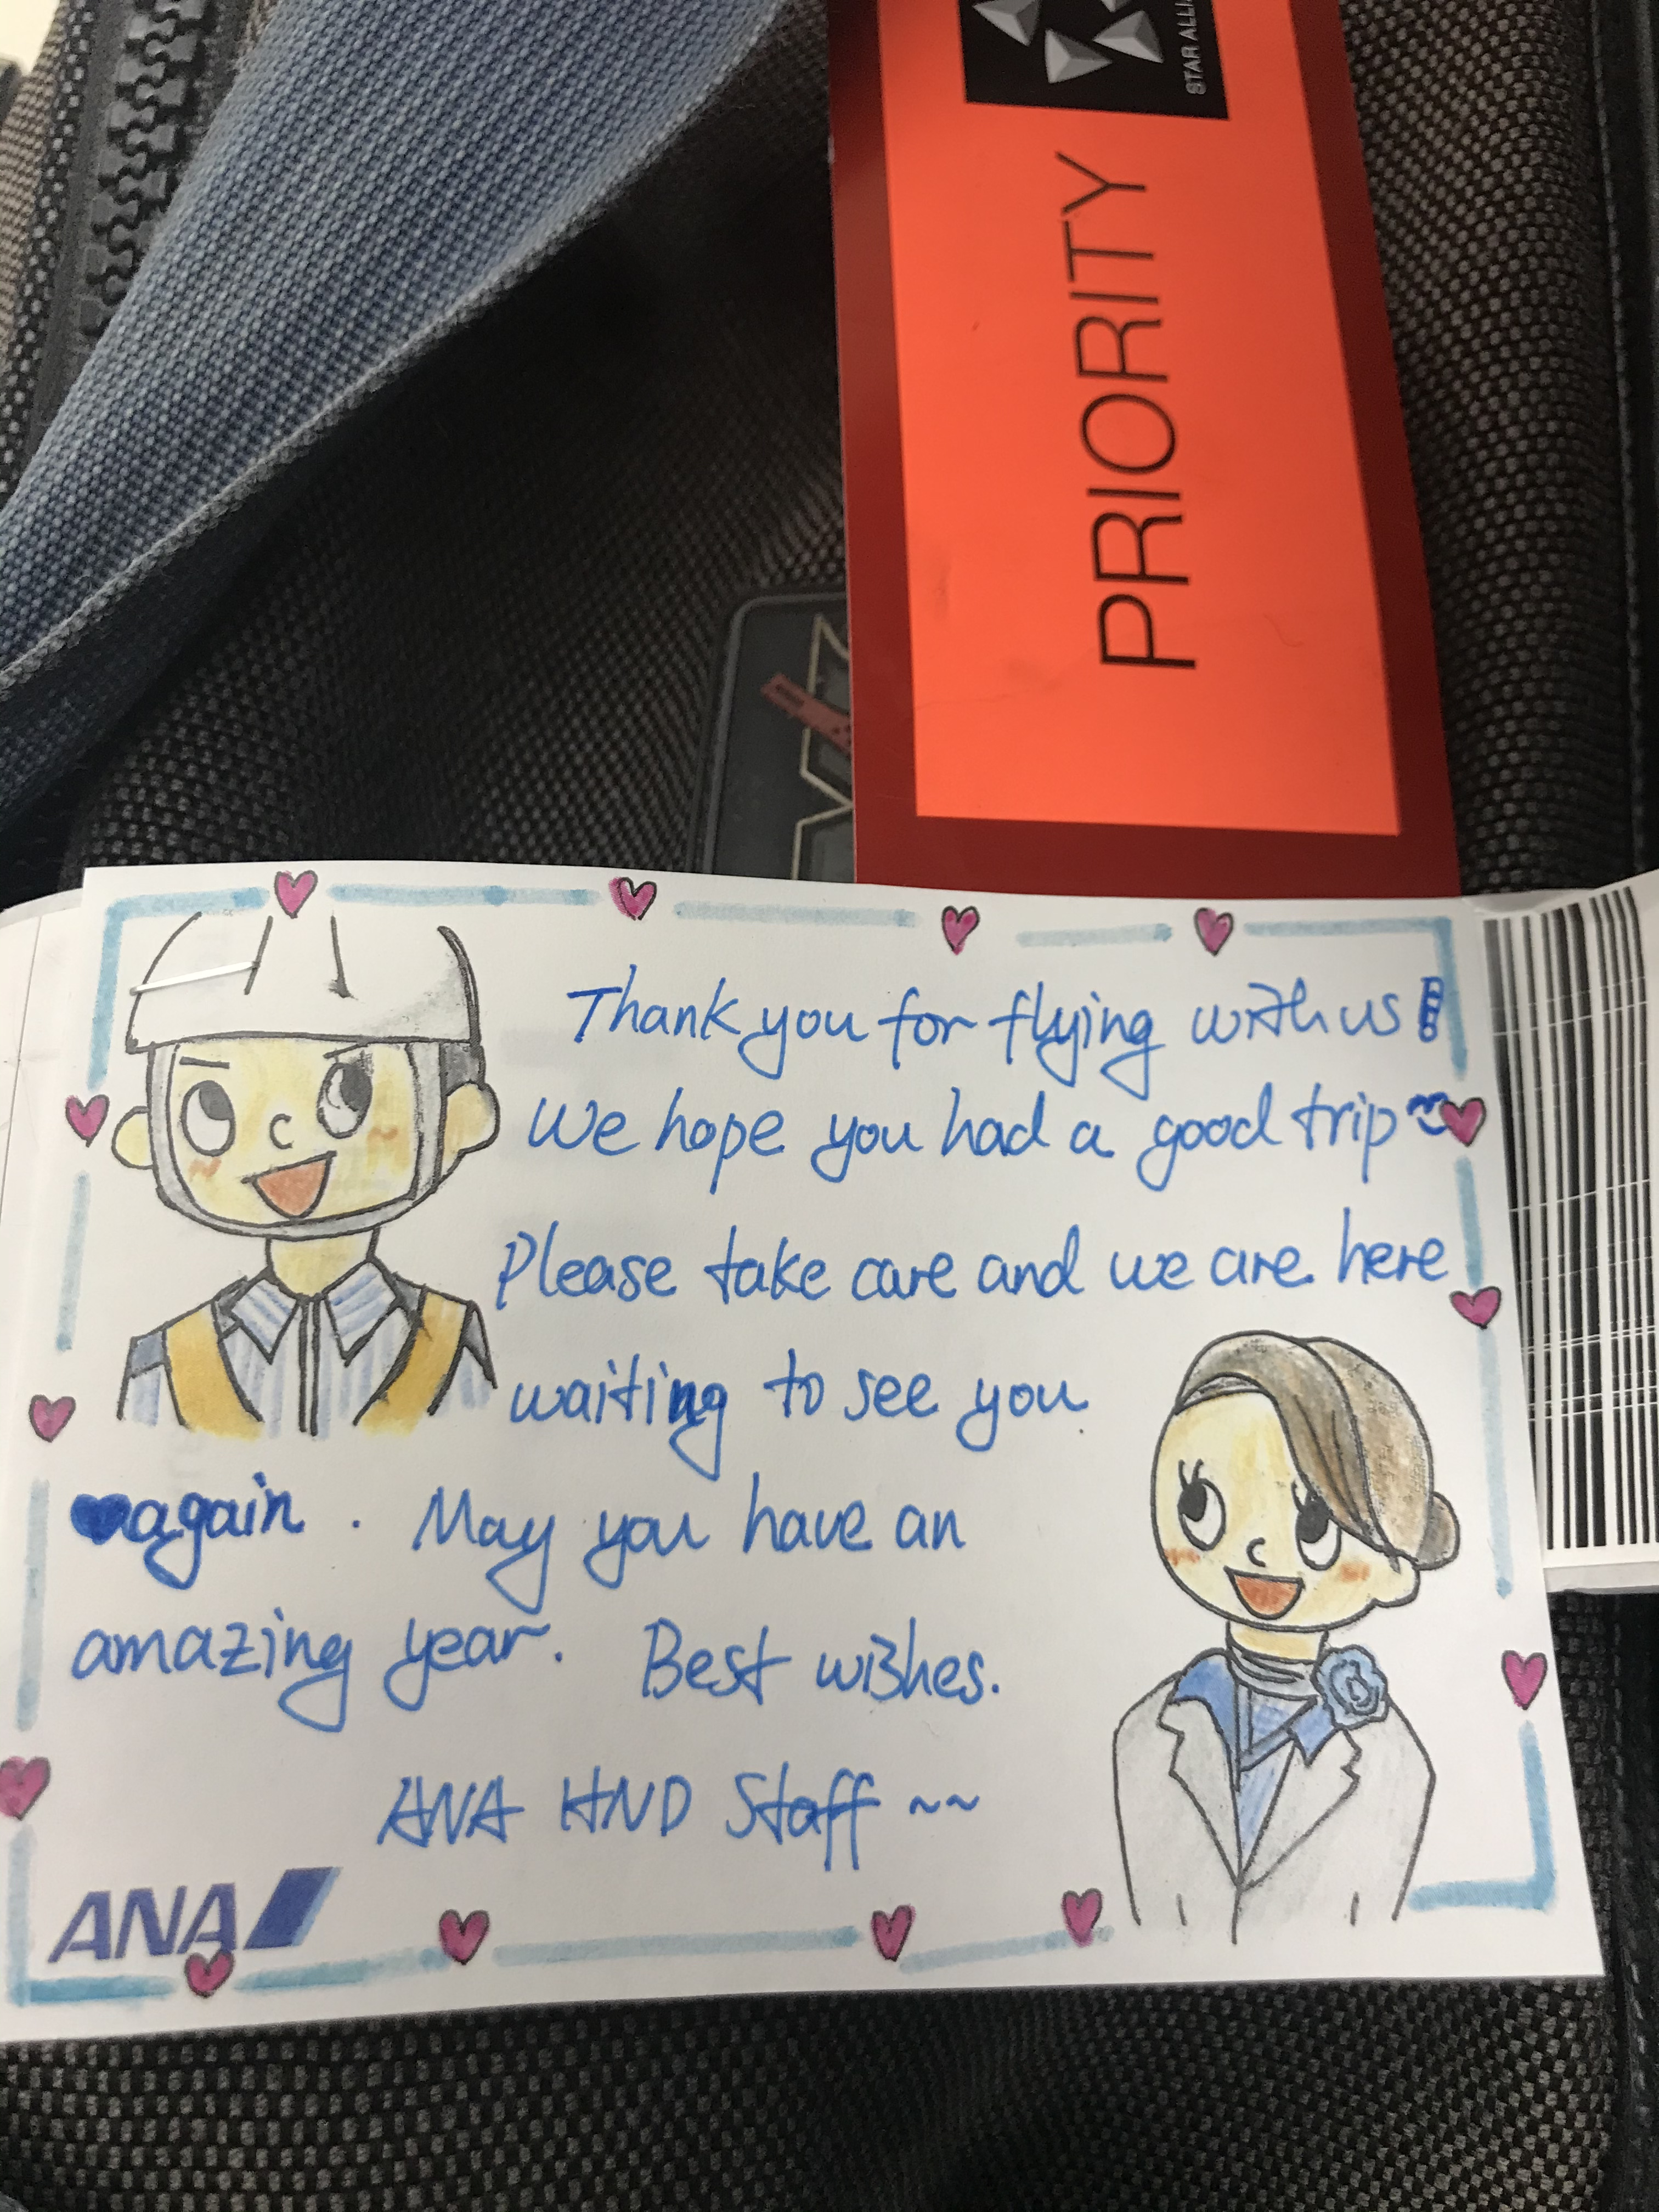 STAR ALLI
PRIORITY
Thank you for flying with us!
We hope you had a good trip
Please take care and we are here
waiting to see you
again. May you have an
amazing year. Best wishes.
ANA HND Staff ~~
ANA